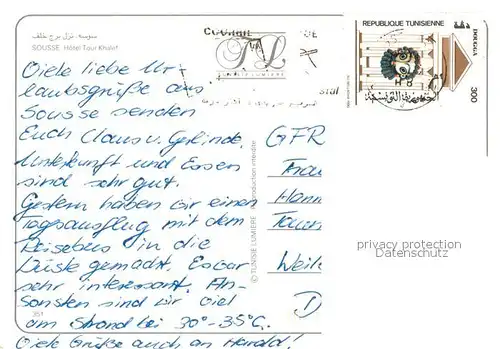 سوسة. نزل برج خلف
SOUSSE. Hôtel Tour Khalef
REPUBLIQUE TUNISIENNE
DOUGGA
300
Viele liebe Ur-
laubsgrüße aus
Sousse senden
Euch Claus u. Gerlinde.
Unterkunft und Essen
sind sehr gut.
Gestern haben wir einen
Tagesausflug mit dem
Reisebus in die
Wüste gemacht. Es war
sehr interessant. An-
sonsten sind wir viel
am Strand bei 30°-35°C.
Viele Grüße auch an Harald!
351
© TUNISIE LUMIERE
reproduction interdite
GFR
Frau
Hann
Taun
Weil
D
privacy protection
Datenschutz